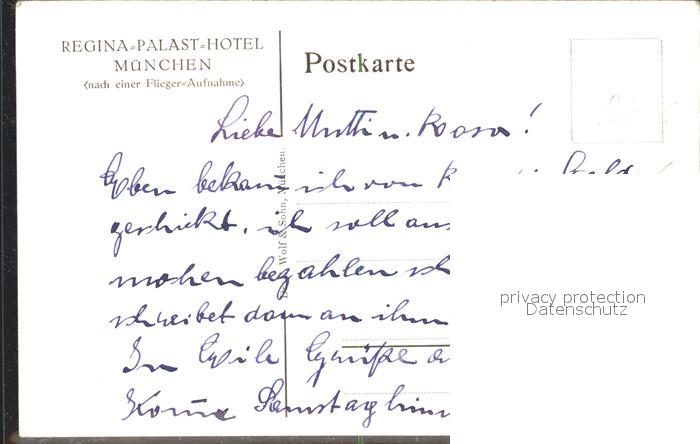 REGINA=PALAST=HOTEL
MÜNCHEN
(nach einer Flieger=Aufnahme)
Postkarte
Liebe Mutti u. Rosa!
Eben bekam ich von
geschickt, ich soll
Wolf & Sohn, München.
bezahlen
schreibet dann an ihm
In Eile Grüße
Komme Samstag
privacy protection
Datenschutz